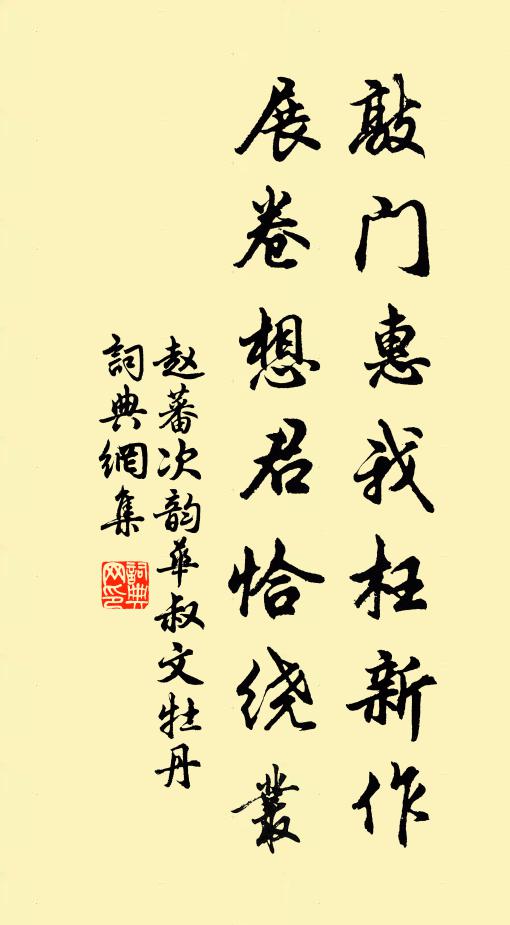 敲门惠我枉新作
展卷想君恰绕丛
赵蕃次韵华叔文牡丹
詞典網集
詞典网印